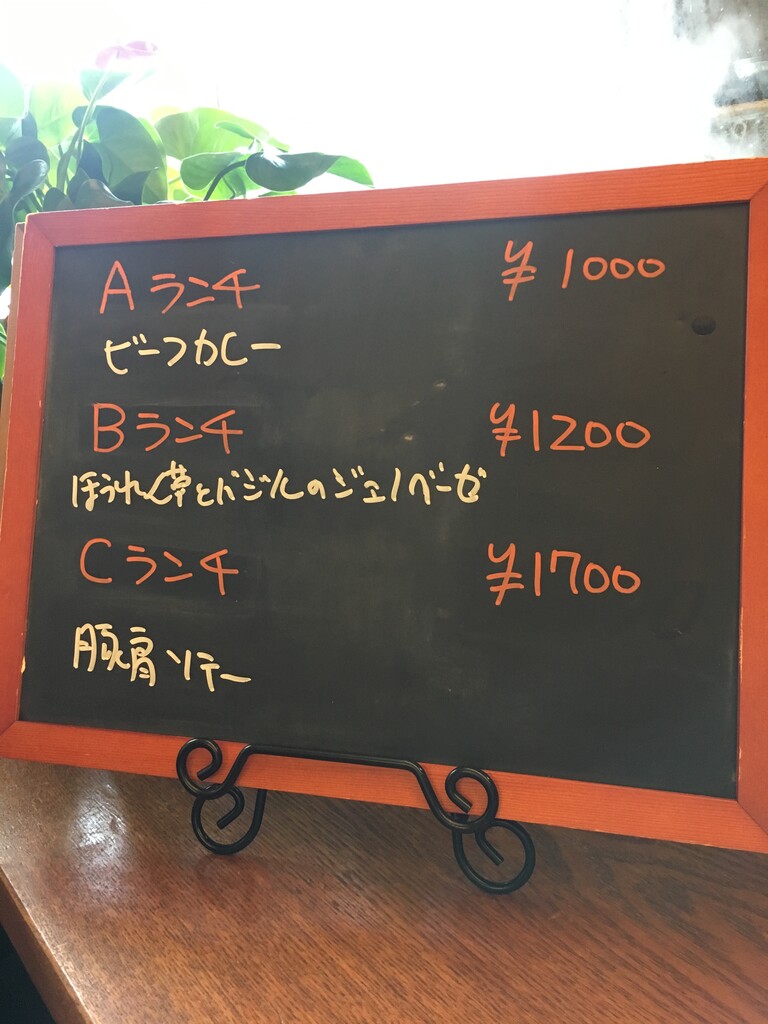 Aランチ ¥1000
ビーフカレー
Bランチ ¥1200
ほうれん草とバジルのジェノベーゼ
Cランチ ¥1700
豚肩ソテー